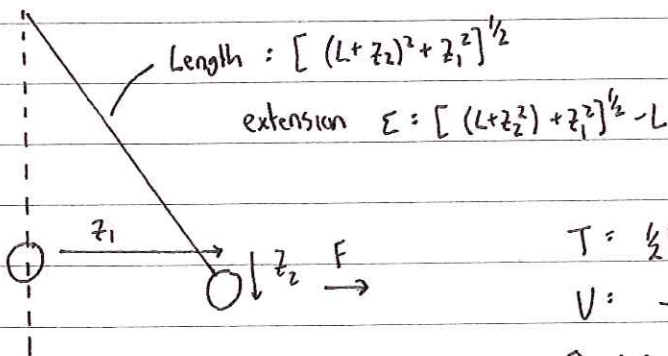 Length : [ (L+z₂)² + z₁² ]^½
extension Σ : [ (L+z₂²) + z₁² ]^½ - L
z₁
z₂
F
T = ½
V =